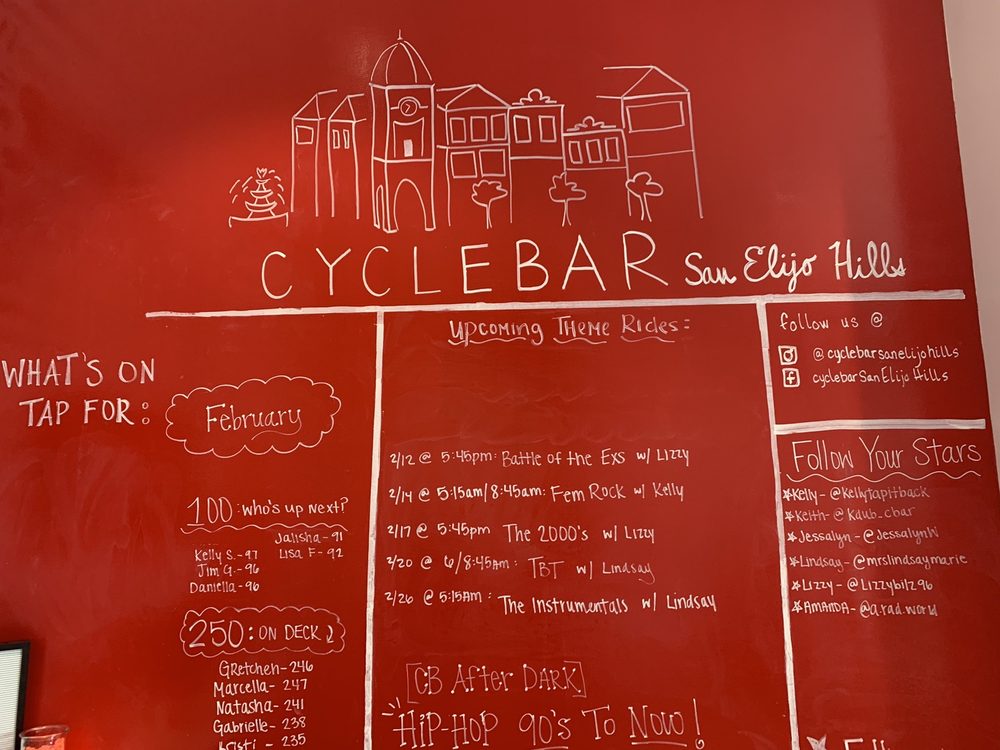 CYCLEBAR San Elijo Hills
WHAT'S ON
TAP FOR:
February
100: WHO'S UP NEXT?
Jalisha-91
Kelly S.-97 Lisa F-92
Jim G.-96
Daniella-96
250: ON DECK
Gretchen-246
Marcella-247
Natasha-241
Gabrielle-238
Kristi-235
UPCOMING THEME RIDES:
2/12 @ 5:45pm: Battle of the Exs w/ Lizzy
2/14 @ 5:15am/8:45am: Fem Rock w/ Kelly
2/17 @ 5:45pm The 2000's w/ Lizzy
2/20 @ 6/8:45Am: TBT w/ Lindsay
2/26 @ 5:15Am: The Instrumentals w/ Lindsay
[CB After DARK]
HIP-HOP 90's To Now!
follow us @
@cyclebarsanelijohills
cyclebarSanElijoHills
Follow Your Stars
Kelly-@kellytapitback
Keith-@kdub_cbar
Jessalyn-@JessalynW
Lindsay-@mrslindsaymarie
Lizzy-@Lizzybilz96
AMANDA-@a.rad.world